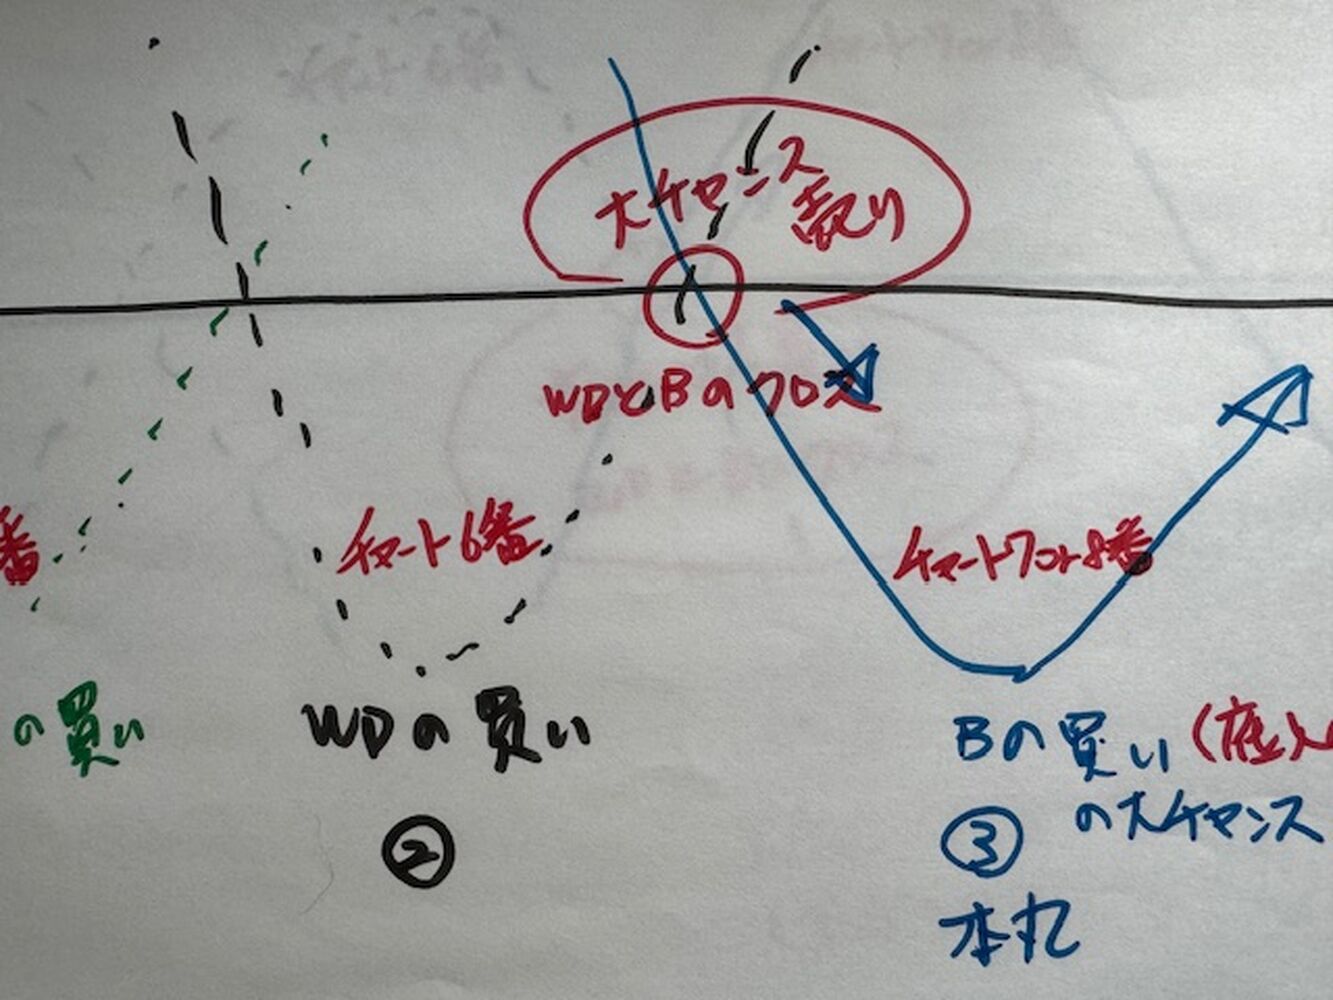 大チャンス
売り
WDとBのクロス
番
チャート6番
チャート7と8番
の買い
WDの買い
②
Bの買い(底入
の大チャンス
③
本丸